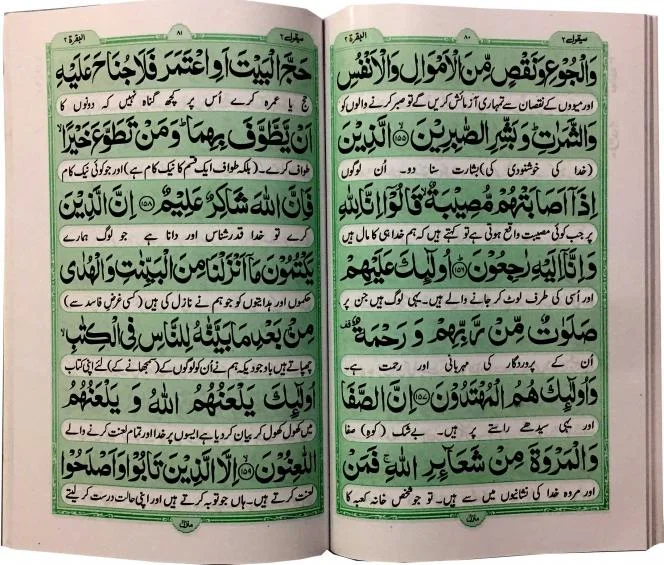 سیقول ٢
٨٠
البقرة ٢
وَالْجُوْعِ وَنَقْصٍ مِّنَ الْاَمْوَالِ وَالْاَنْفُسِ
اور میووں کے نقصان سے تمہاری آزمائش کریں گے تو صبر کرنے والوں کو
وَالثَّمَرٰتِ ؕ وَبَشِّرِ الصّٰبِرِیْنَ ﴿١٥٥﴾ الَّذِیْنَ
(خدا کی خوشنودی کی) بشارت سنا دو۔ اُن لوگوں
اِذَاۤ اَصَابَتْهُمْ مُّصِیْبَةٌ ۙ قَالُوْۤا اِنَّا لِلّٰهِ
پر جب کوئی مصیبت واقع ہوتی ہے تو کہتے ہیں کہ ہم خدا ہی کا مال ہیں
وَاِنَّاۤ اِلَیْهِ رٰجِعُوْنَ ﴿١٥٦﴾ اُولٰٓئِكَ عَلَیْهِمْ
اور اُسی کی طرف لوٹ کر جانے والے ہیں۔ یہی لوگ ہیں جن پر
صَلَوٰتٌ مِّنْ رَّبِّهِمْ وَ رَحْمَةٌ ۫
اُن کے پروردگار کی مہربانی اور رحمت ہے۔
وَاُولٰٓئِكَ هُمُ الْمُهْتَدُوْنَ ﴿١٥٧﴾ اِنَّ الصَّفَا
اور یہی سیدھے راستے پر ہیں۔ بےشک (کوہِ) صفا
وَالْمَرْوَةَ مِنْ شَعَآئِرِ اللّٰهِ ۚ فَمَنْ
اور مروہ خدا کی نشانیوں میں سے ہیں۔ تو جو شخص خانہ کعبہ کا
منزل
سیقول ٢
٨١
البقرة ٢
حَجَّ الْبَیْتَ اَوِ اعْتَمَرَ فَلَا جُنَاحَ عَلَیْهِ
حج یا عمرہ کرے اُس پر کچھ گناہ نہیں کہ دونوں کا
اَنْ یَّطَّوَّفَ بِهِمَا ؕ وَمَنْ تَطَوَّعَ خَیْرًا ۙ
طواف کرے۔ (بلکہ طواف ایک قسم کا نیک کام ہے) اور جو کوئی نیک کام
فَاِنَّ اللّٰهَ شَاكِرٌ عَلِیْمٌ ﴿١٥٨﴾ اِنَّ الَّذِیْنَ
کرے تو خدا قدر شناس اور دانا ہے جو لوگ ہمارے
یَكْتُمُوْنَ مَاۤ اَنْزَلْنَا مِنَ الْبَیِّنٰتِ وَالْهُدٰی
حکموں اور ہدایتوں کو جو ہم نے نازل کی ہیں (کسی غرض فاسد سے)
مِنْۢ بَعْدِ مَا بَیَّنّٰهُ لِلنَّاسِ فِی الْكِتٰبِ ۙ
چھپاتے ہیں باوجودیکہ ہم نے اُن کو لوگوں کے (سمجھانے کے) لئے اپنی کتاب
اُولٰٓئِكَ یَلْعَنُهُمُ اللّٰهُ وَ یَلْعَنُهُمُ
میں کھول کھول کر بیان کر دیا ہے ایسوں پر خدا اور تمام لعنت کرنے والے
اللّٰعِنُوْنَ ﴿١٥٩﴾ اِلَّا الَّذِیْنَ تَابُوْا وَاَصْلَحُوْا
لعنت کرتے ہیں۔ ہاں جو توبہ کرتے ہیں اور اپنی حالت درست کر لیتے
منزل